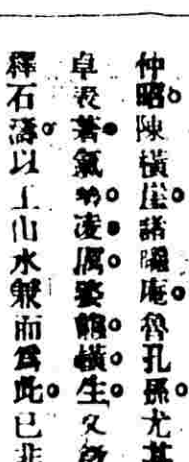 仲昭。陳橫崖。諸曦庵。魯孔孫。尤其
卓表著。氣凌厲。姿態橫生。又
釋石濤。以上山水兼而爲此。已非